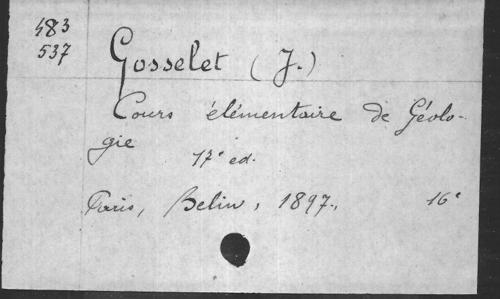 483
537
Gosselet (J.)
Cours élémentaire de Géolo-
gie
17e ed.
Paris, Belin, 1897., 16°